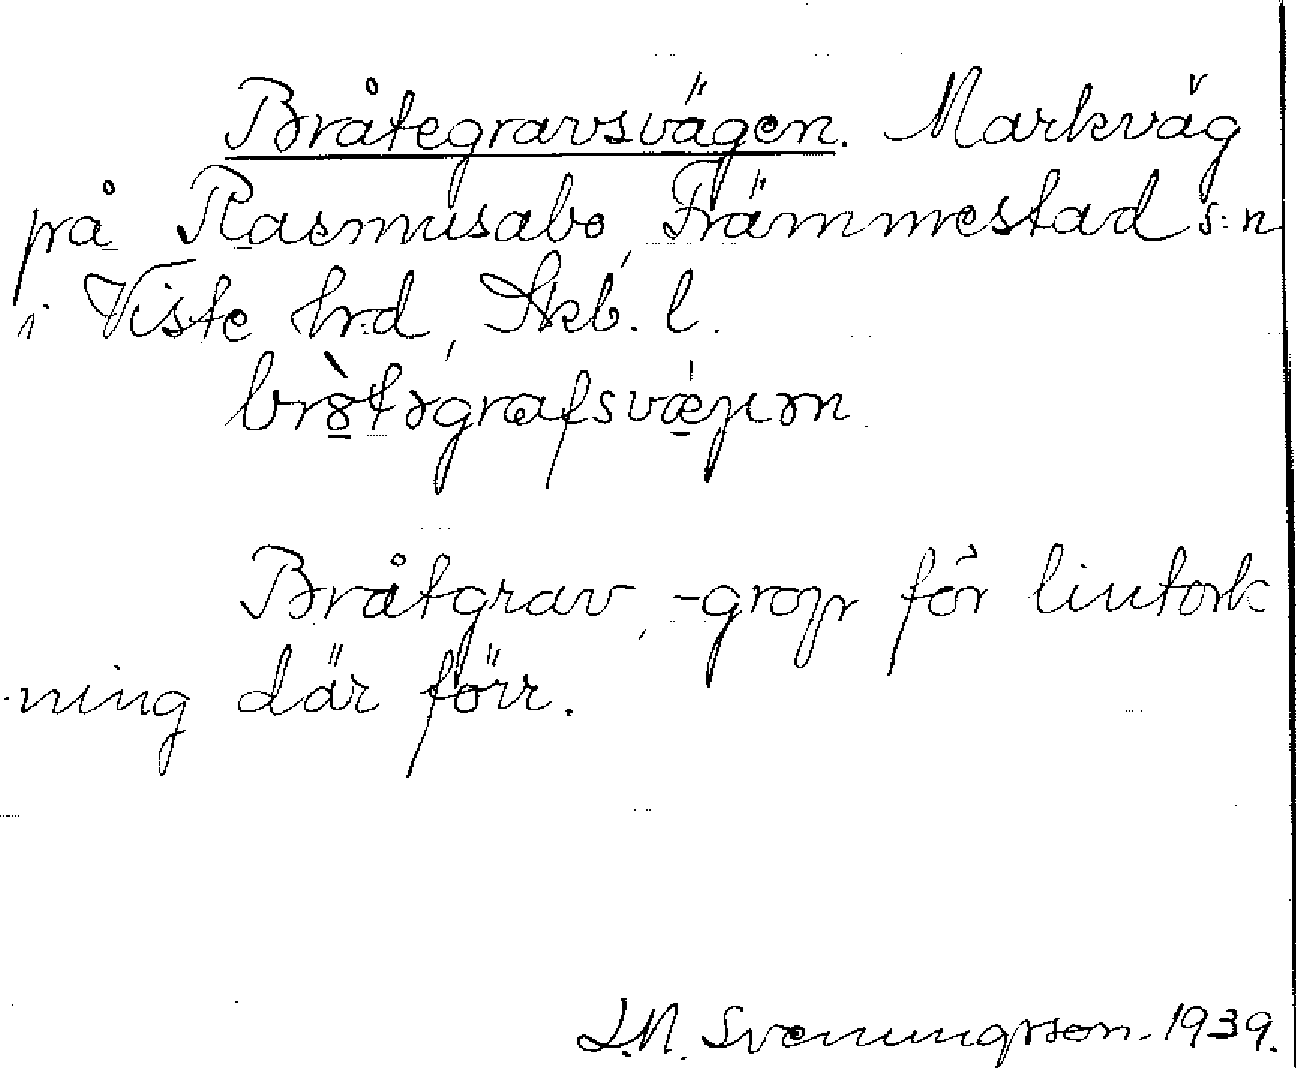 Bråtegravsvägen. Markväg
på Rasmusabo, Främmestad s:n
i Viste hrd, Skb. l.
Bråtgrav, -grop för lintork
ning där förr.
S.N. Svenungsson. 1939.